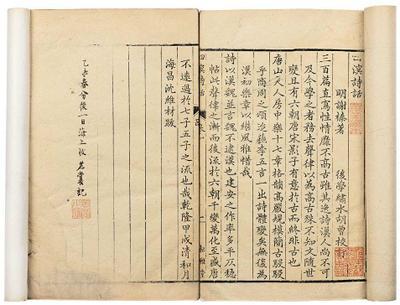 四溟詩話
明謝榛著　後學繡水胡曾校
三百篇直寫性情靡不高古雖其逸詩漢人尚不可
及今學之者務去聲律以為高古殊不知文隨世
變且有六朝唐宋影子有意於古而終非古也
唐山夫人房中樂十七章格韻高嚴規模簡古駸駸
乎商周之頌迨蘇李五言一出詩體變矣無復為
漢初樂章以繼風雅惜哉
詩以漢魏並言魏不逮漢也建安之作率多平仄穩
帖此聲律之漸而後流於六朝千變萬化至盛唐
四溟詩話
不遠過於七子五子之流也哉乾隆甲戌清和月
海昌沈維材跋
春分後一日海上收
記